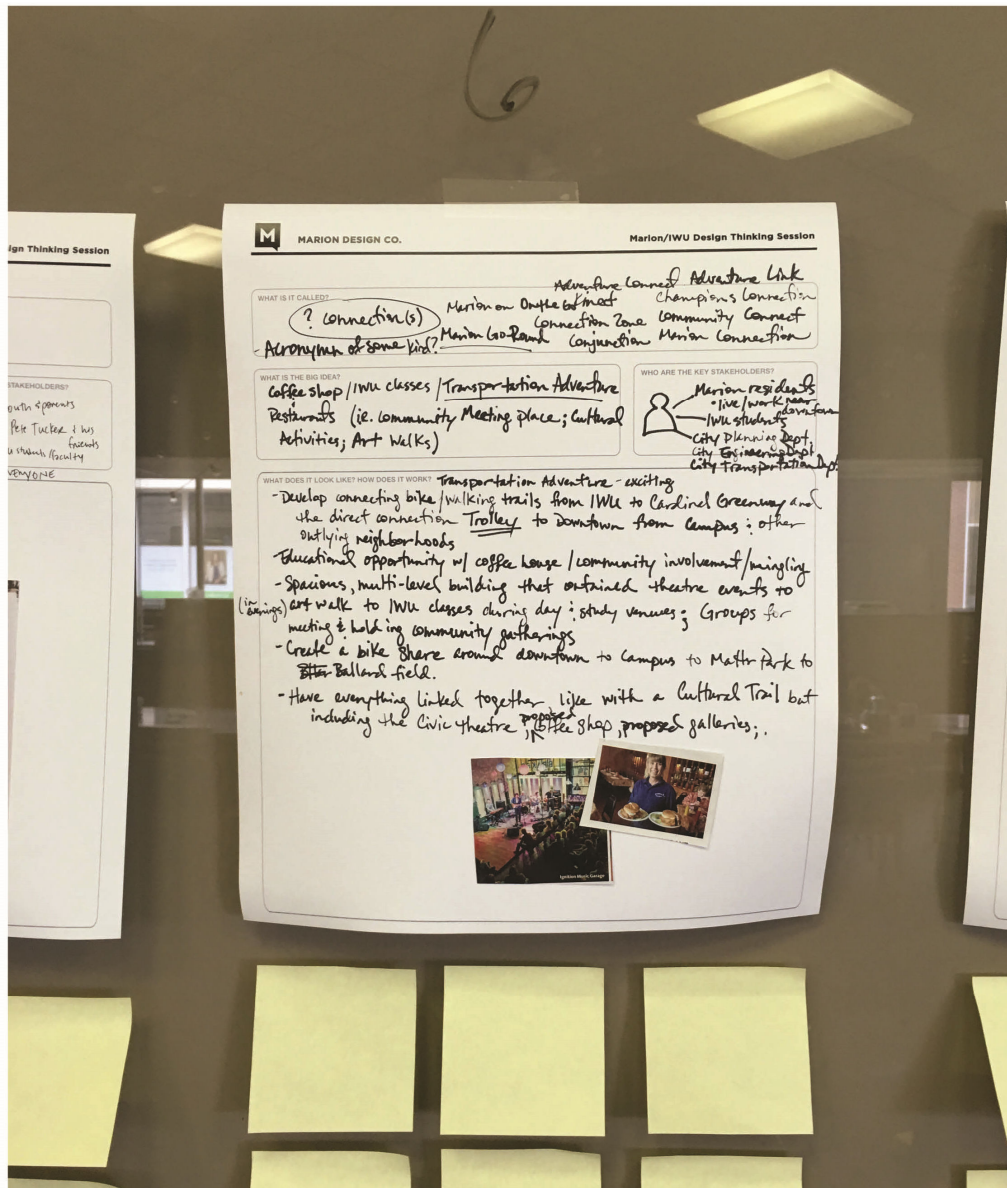 6
ign Thinking Session
STAKEHOLDERS?
outh & parents
Pete Tucker & his
friends
u students/faculty
VERYONE
M MARION DESIGN CO. Marion/IWU Design Thinking Session
WHAT IS IT CALLED?
? connection(s)
- Acronymn of some kind?
Marion on the Go
Marion Go-Round
Adventure Connect Adventure Link
Kinect Champions Connection
Connection Zone Community Connect
Conjunction Marion Connection
WHAT IS THE BIG IDEA?
Coffee shop/IWU classes/Transportation Adventure
Restaurants (ie. community Meeting place; Cultural
Activities; Art Walks)
WHO ARE THE KEY STAKEHOLDERS?
Marion residents
• live/work near
downtown
IWU students
City Planning Dept.
City Engineering Dept
City Transportation Dept.
WHAT DOES IT LOOK LIKE? HOW DOES IT WORK? Transportation Adventure - exciting
- Develop connecting bike/walking trails from IWU to Cardinal Greenway and
the direct connection Trolley to Downtown from campus & other
outlying neighborhoods
- Educational opportunity w/ coffee house/community involvement/mingling
- Spacious, multi-level building that ontained theatre events to
(in evenings) art walk to IWU classes during day & study venues; Groups for
meeting & holding community gatherings
- Create a bike share around downtown to campus to Matter Park to
Ballard field.
- Have everything linked together like with a Cultural Trail but
including the Civic theatre, proposed coffee shop, proposed galleries;.
Ignition Music Garage